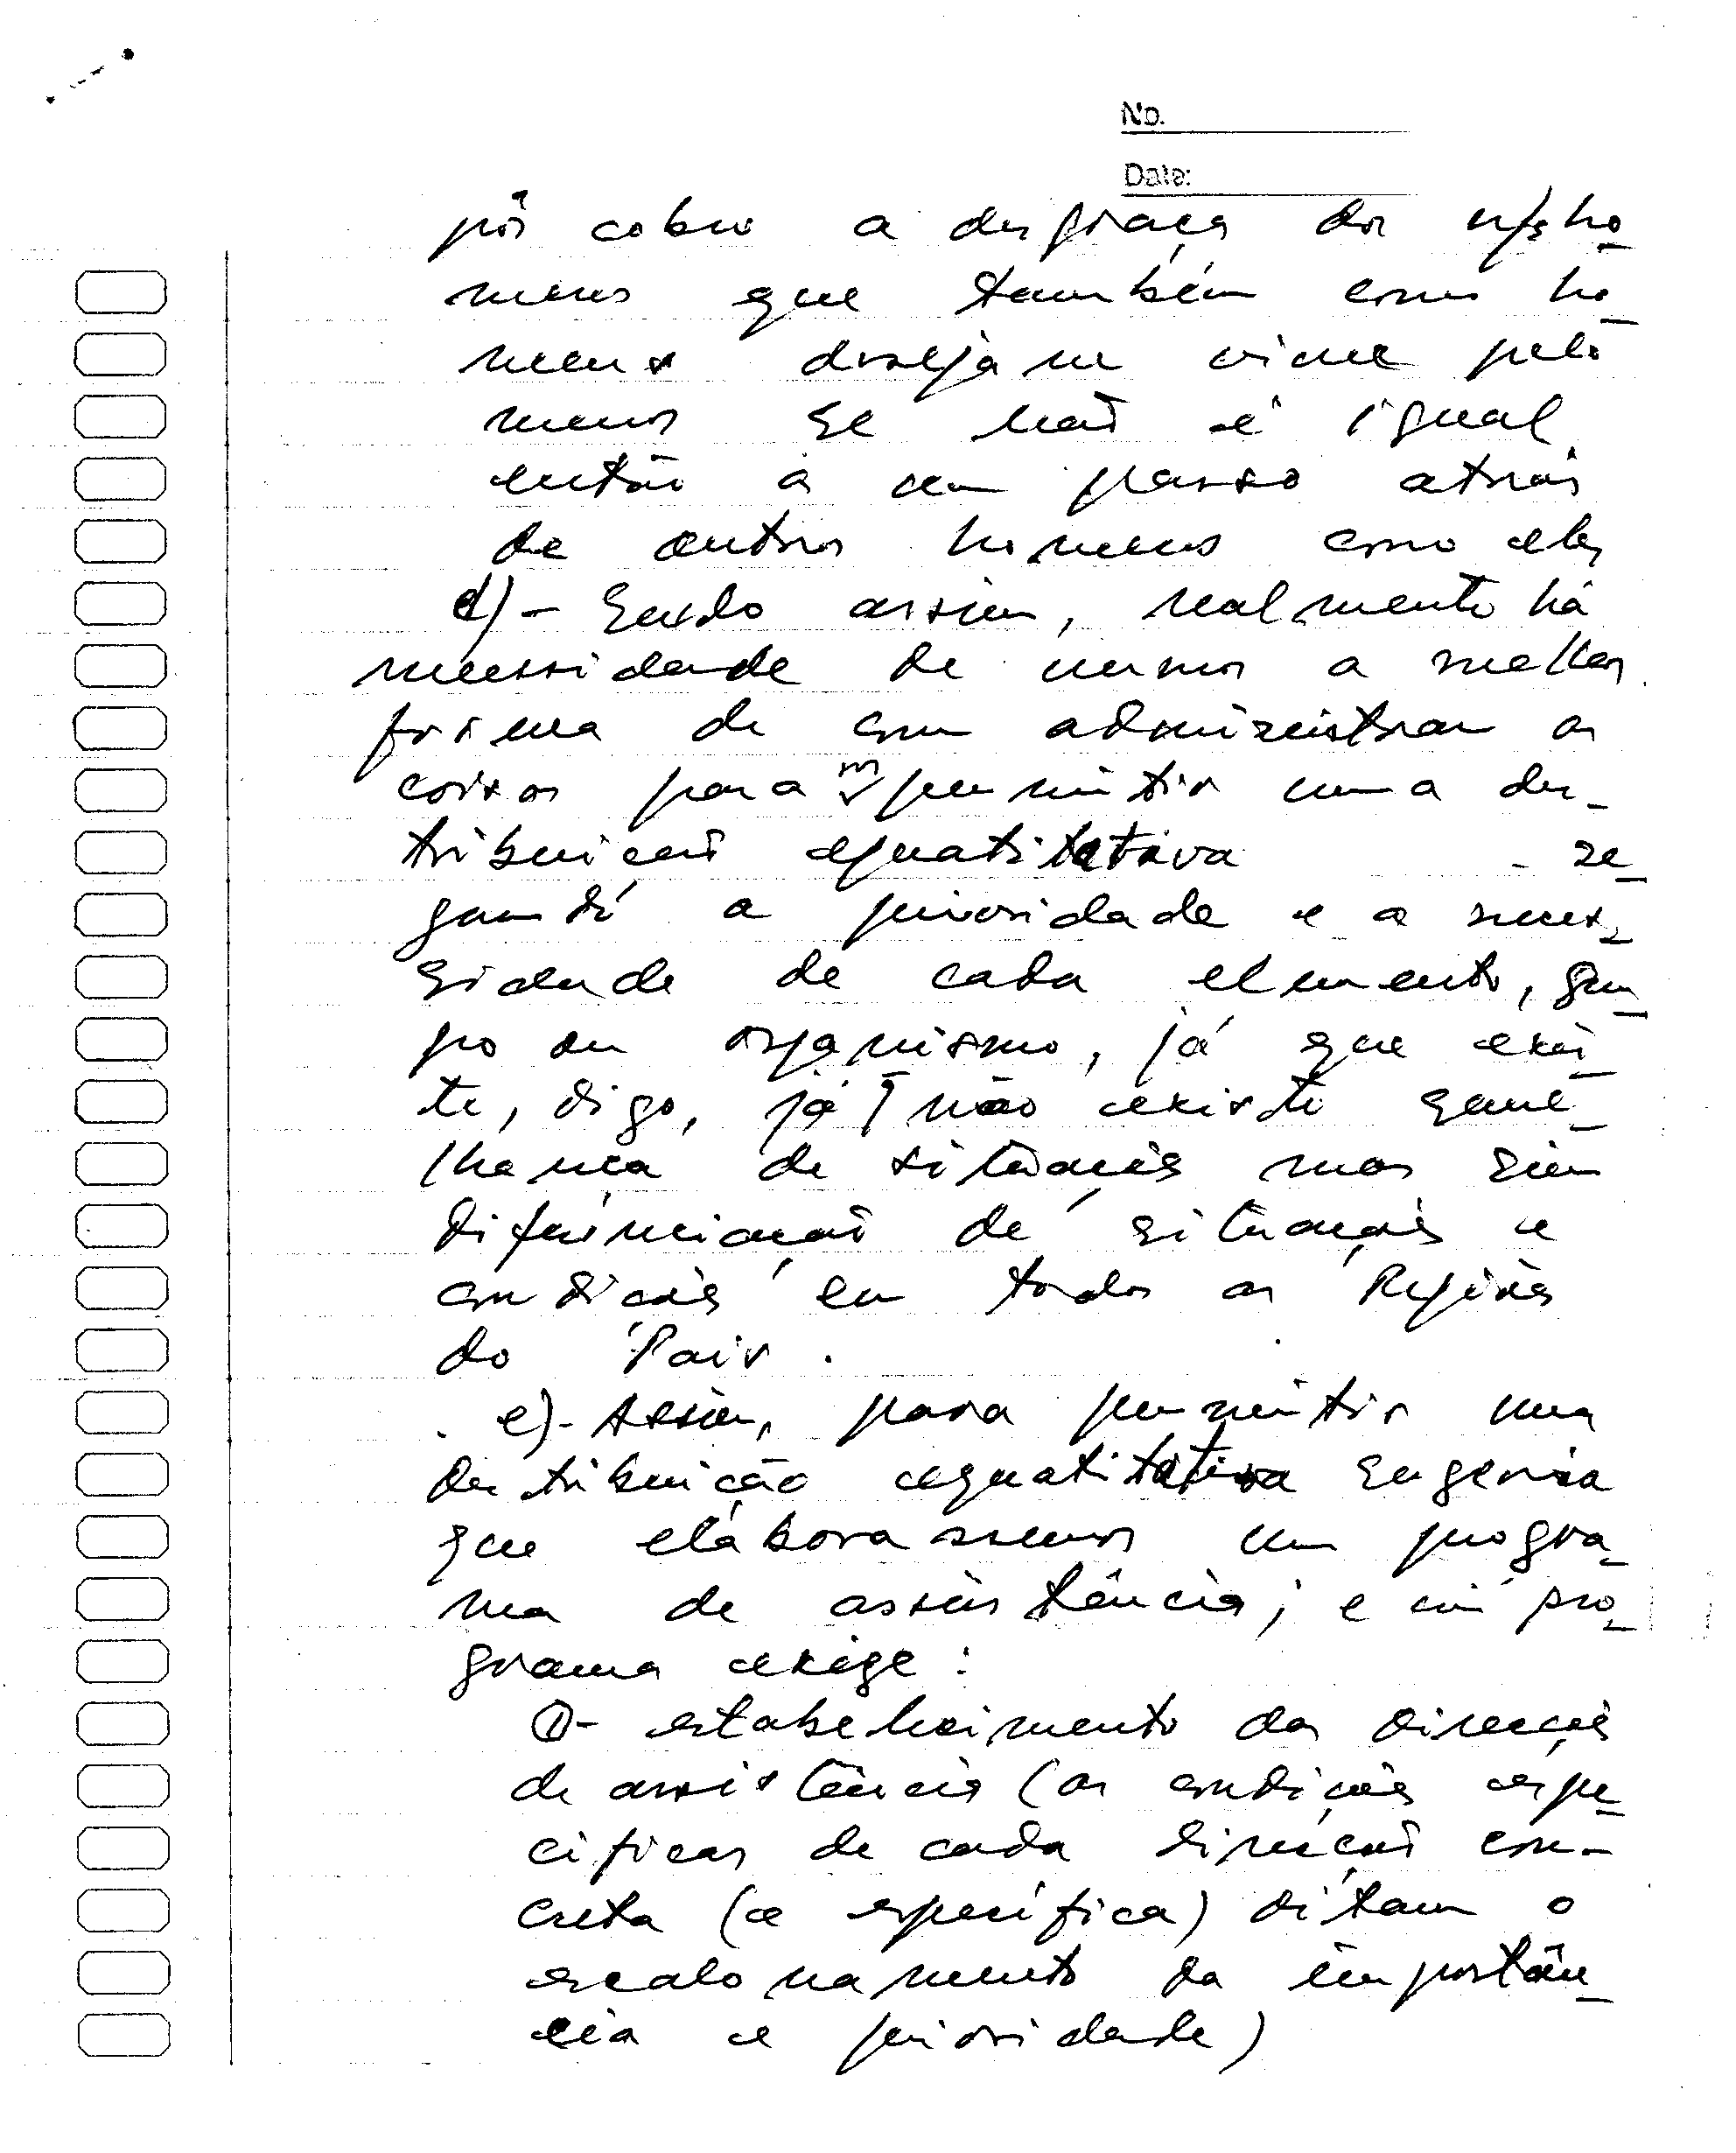 No.
Date:
pôr cobro a desgraça dos n/s ho-
mens que também como ho-
mens desejam viver pelo
menos se não é igual
então a um passo atrás
de outros homens como eles
d)- Sendo assim, realmente há
necessidade de vermos a melhor
forma de com administrar as
coisas para m permitir uma des-
tribuição equatitativa - se-
gundo a prioridade e a neces-
sidade de cada elemento, gru-
po ou organismo, já que exis-
te, digo, já não existe seme-
lhança de situações mas sim
diferenciação de situações e
condições em todas as Regiões
do País.
e)- Assim, para permitir uma
destribuição equatitativa sugeria
que elaborassemos um progra-
ma de assistência; e um pro-
grama exige:
1- estabelecimento das direcções
de assistência (as condições espe-
cificas de cada direcção con-
creta (e especifica) ditam o
escalonamento da importân-
cia e prioridade)